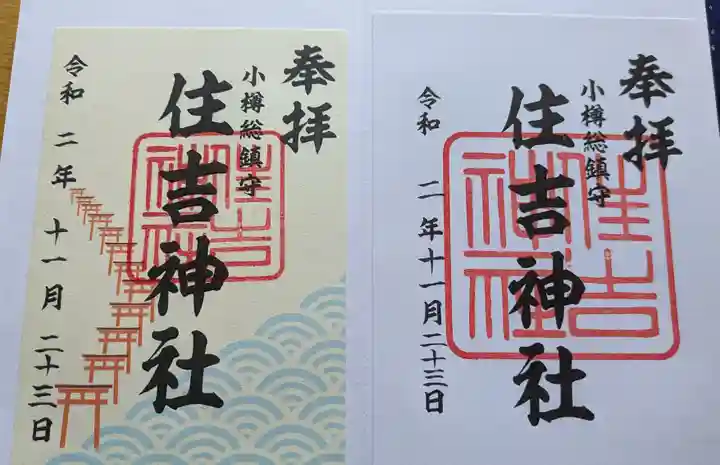 奉拝
小樽総鎮守
住吉神社
住吉神社
令和二年十一月二十三日
奉拝
小樽総鎮守
住吉神社
住吉神社
令和二年十一月二十三日